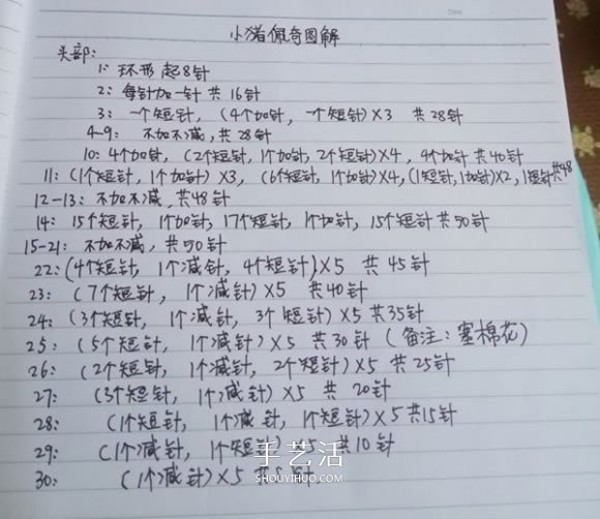 小猪佩奇图解
头部:
1: 环形起8针
2: 每针加一针 共16针
3: 一个短针, (4个加针, 一个短针)X3 共28针
4-9: 不加不减, 共28针
10: 4个加针, (2个短针, 1个加针, 2个短针)X4, 4个加针 共40针
11: (1个短针, 1个加针) X3, (6个短针, 1个加针)X4, (1短针, 1加针)X2, 1短针 共48
12-13: 不加不减, 共48针
14: 15个短针, 1个加针, 17个短针, 1个加针, 15个短针 共50针
15-21: 不加不减, 共50针
22: (4个短针, 1个减针, 4个短针)X5 共45针
23: (7个短针, 1个减针)X5 共40针
24: (3个短针, 1个减针, 3个短针)X5 共35针
25: (5个短针, 1个减针)X5 共30针 (备注: 塞棉花)
26: (2个短针, 1个减针, 2个短针)X5 共25针
27: (3个短针, 1个减针)X5 共20针
28: (1个短针, 1个减针, 1个短针)X5 共15针
29: (1个减针, 1个短针)X5 共10针
30: (1个减针)X5 共5针
手艺活
SHOUYIHUO.COM